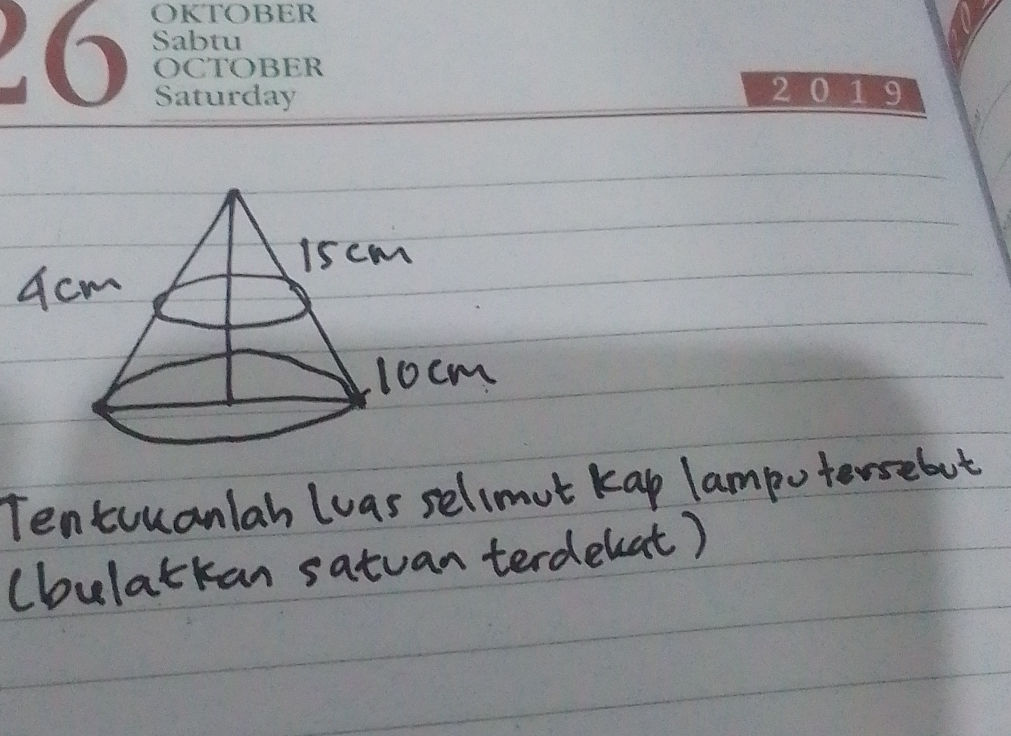 26
OKTOBER
Sabtu
OCTOBER
Saturday
2019
15cm
4cm
10cm
Tentukanlah luas selimut kap lampu tersebut
(bulatkan satuan terdekat)